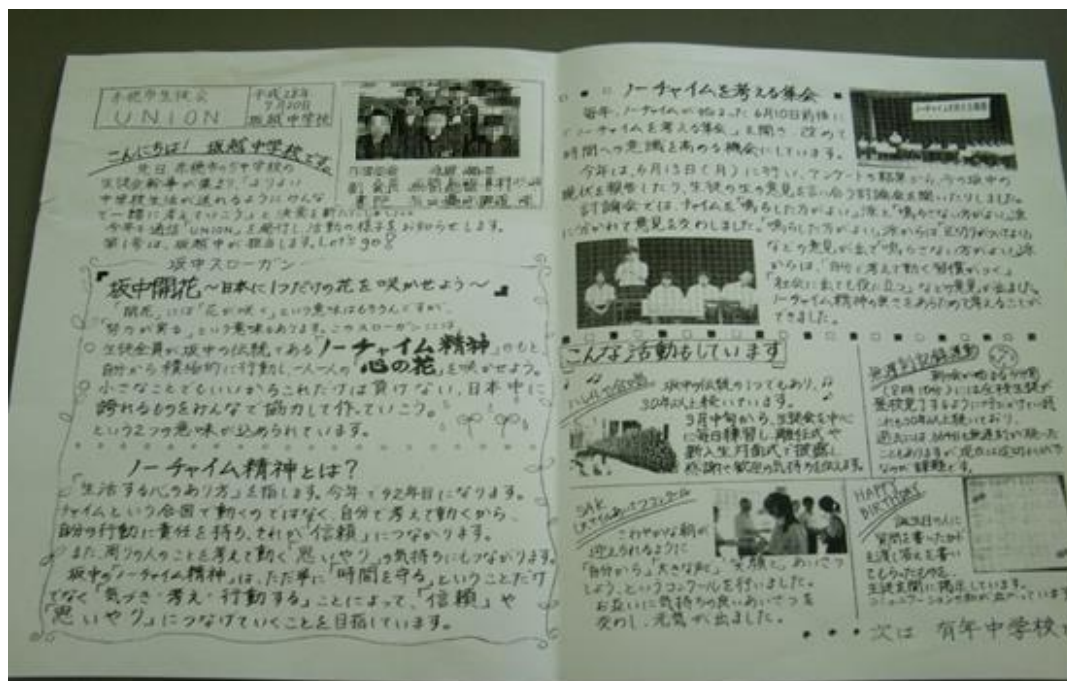 赤穂市生徒会
UNION
平成28年
7月20日
坂越中学校
こんにちは! 坂越中学校です。
先日、赤穂市の5中学校の
生徒会幹事が集まり、「よりよい
中学校生活が送れるようにみんな
で一緒に考えていこう」と決意を新たにしました。
今年も通信「UNION」を発行し、活動の様子をお知らせします。
第1号は、坂越中が担当します。Let's go!
坂中スローガン
坂中開花 ~日本に1つだけの花を咲かせよう~
「開花」には「花が咲く」という意味はもちろんですが、
「努力が実る」という意味もあります。このスローガンには、
生徒全員が坂中の伝統である「ノーチャイム精神」のもと、
自ら積極的に行動し、一人一人の「心の花」を咲かせよう。
小さなことでもいいからこれだけは負けない、日本中に
誇れるものをみんなで協力して作っていこう。
という2つの意味が込められています。
ノーチャイム精神とは?
「生活する心のあり方」を指します。今年で42年目になります。
チャイムという合図で動くのではなく、自分で考えて動くから、
自分の行動に責任を持ち、それが「信頼」につながります。
また、周りの人のことを考えて動く「思いやり」の気持ちにもつながります。
坂中の「ノーチャイム精神」は、ただ単に「時間を守る」ということだけ
でなく「気づき・考え・行動する」ことによって、「信頼」や
「思いやり」につなげていくことを目指しています。
ノーチャイムを考える集会
毎年、ノーチャイムが始まった6月10日前後に
「ノーチャイムを考える集会」を開き、改めて
時間への意識を高める機会にしています。
今年は、6月13日(月)に行い、アンケートの結果から、今の坂中の
現状を報告したり、生徒の生の意見を言い合う討論会を開いたりしました。
討論会では、チャイムを「鳴らした方がよい」派と「鳴らさない方がよい」派
に分かれて意見を交わしました。「鳴らした方がよい」派からは「区切りがついてよい」
などの意見が出て「鳴らさない方がよい」派
からは、「自分で考えて動く習慣がつく」
「社会に出ても役に立つ」などの意見が出ました。
ノーチャイム精神の良さをあらためて考えることが
できました。
こんな活動もしています
ハレルヤ合唱
坂中の伝統の1つでもあり、
30年以上続いています。
3月中旬から、生徒会を中心
に毎日練習し、離任式や
新入生対面式で披露し、
感謝や歓迎の気持ちを伝えます。
無遅刻記録運動
朝の会の始まる5分前
(8時10分)には全校生徒が
登校完了するように呼びかけています。
これも30年以上続いており、
なのが課題です。
SAK
さわやかな朝が
迎えられるように
「自分から」「大きな声で」「笑顔で」あいさつ
しよう、というコンクールを行いました。
お互いに気持ちの良いあいさつを
交わし、元気が出ました。
HAPPY
BIRTHDAY
誕生日の人に
質問を書いたカード
を渡し答えを書い
てもらったものを、
生徒玄関に掲示しています。
コミュニケーションの輪が広がっています
次は 有年中学校